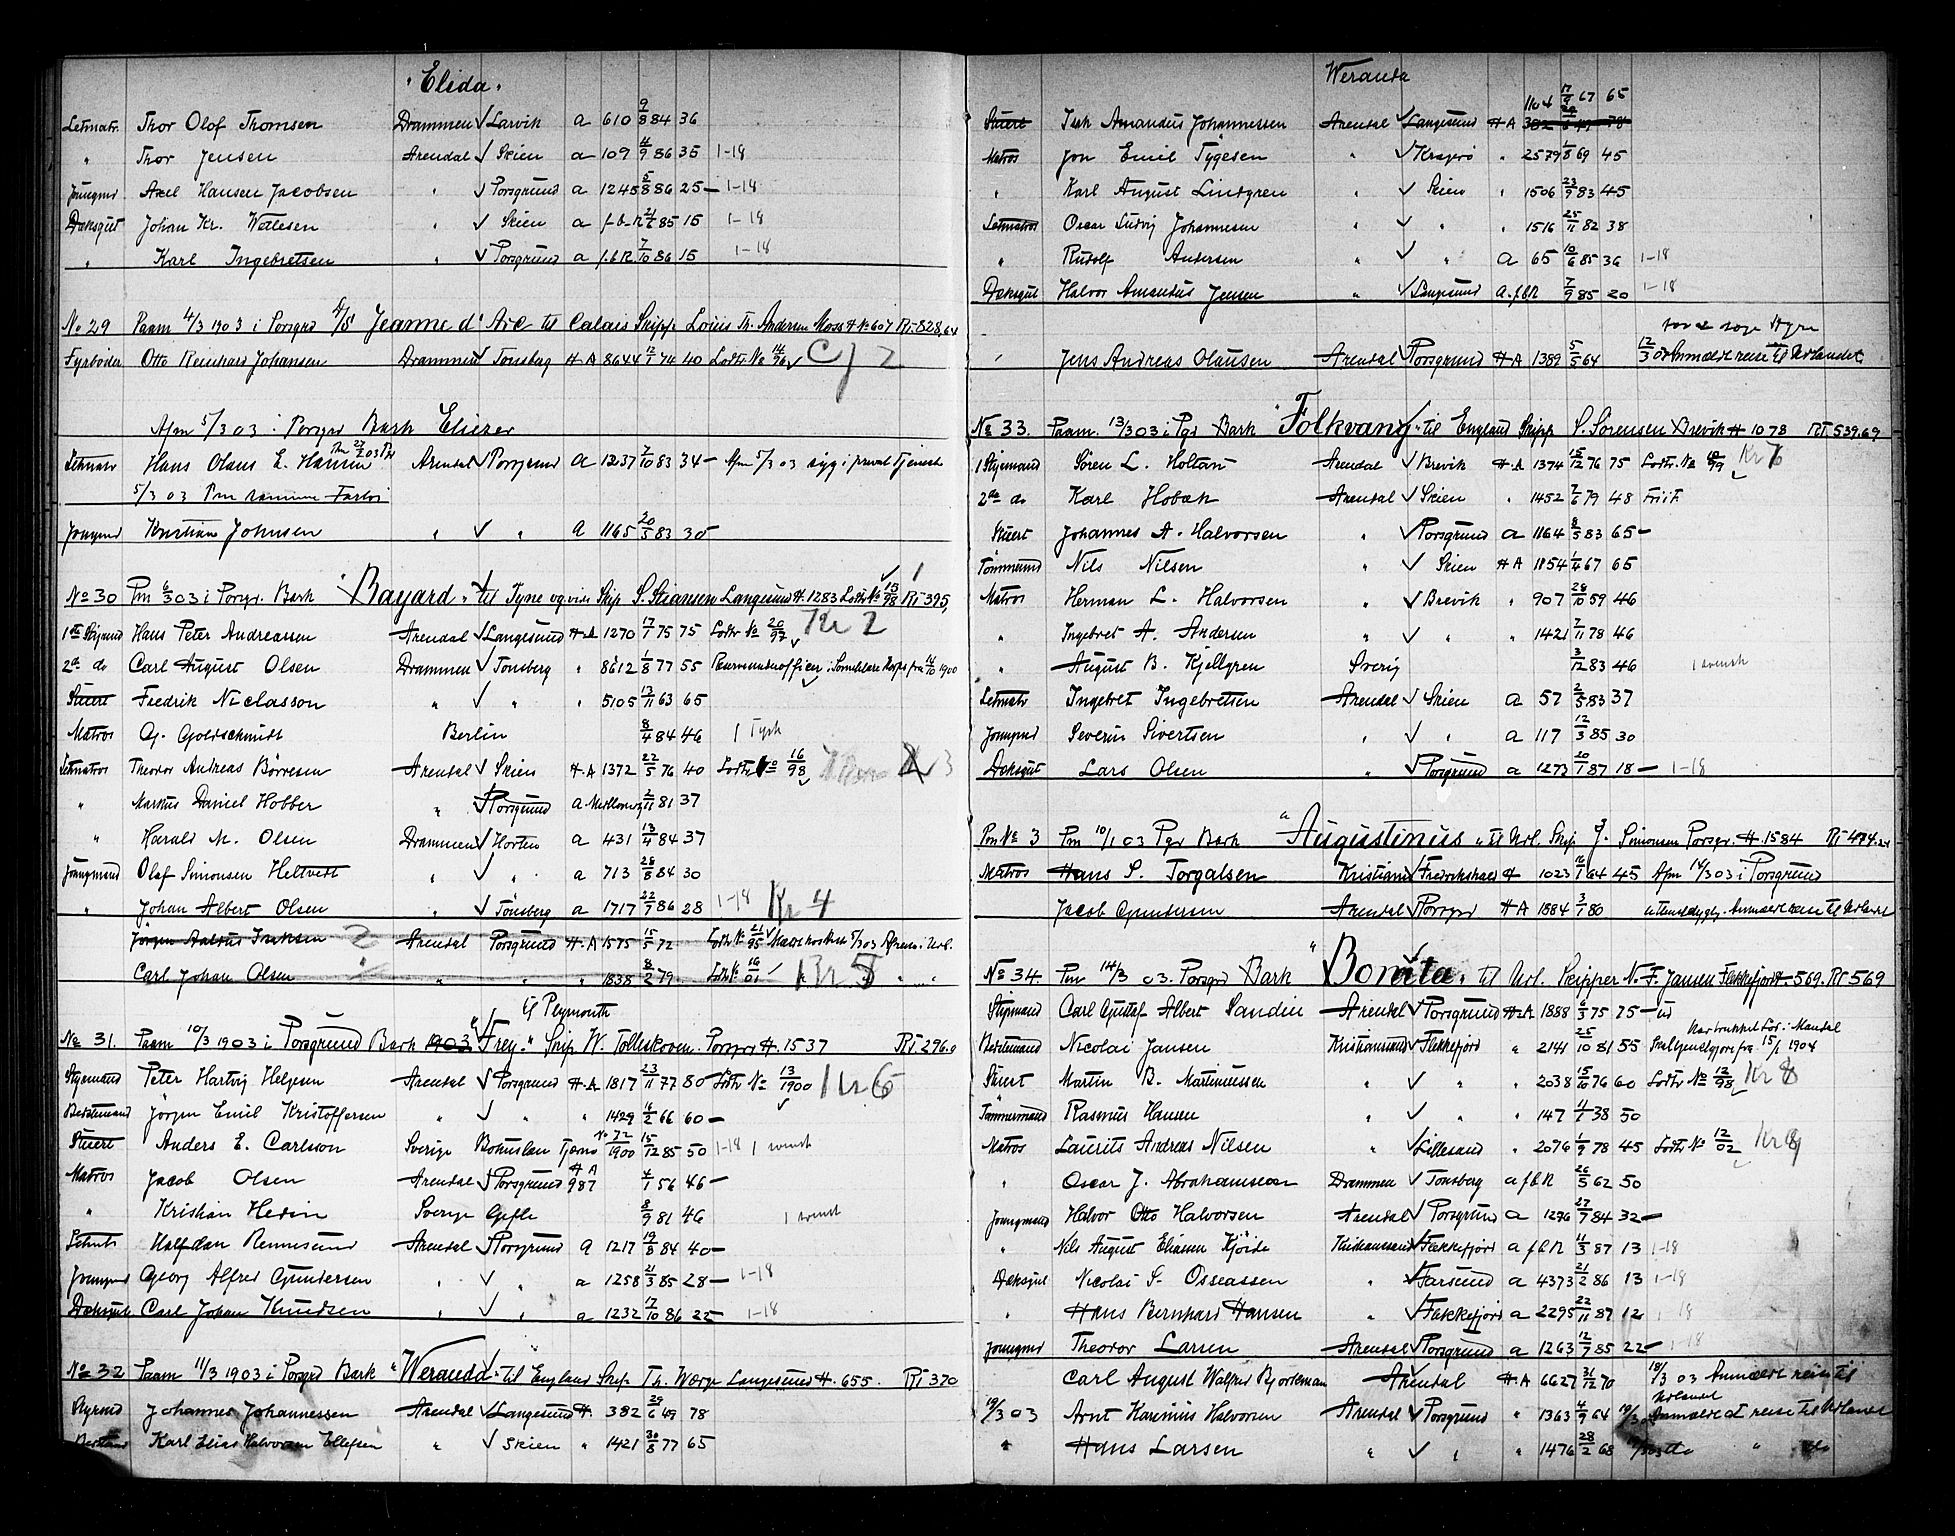 "Elida"
Letmatr. Thor Olof Thomsen Drammen √ Larvik a 610 9/8 84 36
" Thor Jensen Arendal √ Skien a 109 11/9 86 35 1-18
Jungmd Axel Hansen Jacobsen " √ Porsgrund a 1245 5/8 86 25 – 1-18
Dæksgut Johan Kr. Wetlesen " √ Skien a f.b.R 85 15 1-18
" Karl Ingebretsen " √ Porsgrund a f.b.R. 7/10 86 15 1-18
No 29 Paam 4/3 1903 i Porsgrd D/S Jeanne d'Arc til Calais Skipp. Louis Th. Andersen Moss H No 607 RT 828,64
Fyrbøder Otto Reinhard Johansen Drammen √ Tønsberg H-A 8644 12/1 76 40 Lodtr. No 14/96 √
Afm 5/3 03 i Porsgrd Bark Eliezer
Letmatr Hans Olaus E. Hansen Arendal √ Porsgrund A 1237 7/10 83 34 – Afm 5/3 03 syg i privat Tjeneste
5/3 03 Pm samme Fartøi
Jungmd Kristian Johnsen " √ " A 1165 20/5 83 30
No 30 Pm 6/3 03 i Porsgr. Bark "Bayard" til Tyne og vide Skip. S. Stiansen Langesund H. 1283 Lodtr No 15/98 RT 395,
1ste Styrmd Hans Peter Andreassen Arendal √ Langesund H-A 1270 17/1 75 75 Lodtr No 20/97 √ Kr 2
2den do Carl August Olsen Drammen √ Tønsberg " 8612 1/8 77 55 1900
Stuert Fredrik Niclasson " √ " " 5105 13/11 63 65
Matros G. Goldschmidt Berlin 8/4 84 46 1 Tysk
Letmatros Theodor Andreas Børresen Arendal √ Skien H-A 1372 22/5 76 40 Lodtr No 16/98 3
" Markus Daniel Hobber " √ Porsgrund a 2/11 81 37
" Harald M. Olsen Drammen √ Horten a 431 13/4 84 37
Jungmand Olaf Simonsen Heltvedt " √ " a 713 28/8 84 30
" Johan Albert Olsen " √ Tønsberg a 1717 22/7 86 28 1-18 Kr 4
Jørgen Arendal Porsgrund H-A 1575 15/5 72 Lodtr No 21/95 √ 5/3 03
Carl Johan Olsen " " " 1838 8/2 79 Lodtr No 16/01 √ Kr 5 " "
til Plymouth
No 31. Paam 10/3 1903 i Porsgrund Bark 1903 "Frey" Skip W. Tollefskoven Porsgr H. 1537 RT 296.0
Styrmand Peter Hartvig Helgesen Arendal √ Porsgrund H-A 1817 23/11 77 80 Lodtr No 13/1900 √ Kr 6
Bedstemand Jørgen Emil Kristoffersen " √ " " 1429 16/2 66 60 –
Stuert Anders E. Carlsson Sverige Bohuslæn Tjørns No 72/1900 15/12 85 50 1-18 1 svensk
Matros Jacob Olsen Arendal √ Porsgrund H A 987 4/1 56 46 –
" Kristian Hedin Sverige Gefle 8/9 81 46 1 svensk
Letmtr Halfdan Rennesund Arendal √ Porsgrund a 1217 19/8 84 40 –
Jungmd Georg Alfred Gundersen " √ " a 1258 21/3 85 28 – 1-18
Dæksgut Carl Johan Knudsen " √ " a 1232 17/10 86 22 – 1-18
No 32 Paam 11/3 1903 i Porsgrd Bark "Weranda" til England Skip. Th. Werge Langesund H. 655. RT 370
Styrmd Johannes Johannessen Arendal √ Langesund H. 382 29/6 49 78
Karl Elias Halvorsen Ellefsen " √ Skien " 1421 30/8 77 65
Weranda
1104 17/9 67 65
Stuert Isak Amandus Johannessen Arendal √ Langesund H-A 382 29/6 49 78
Matros Jon Emil Tygesen " √ Kragerø " 2579 1/8 69 45
" Karl August Lindgren " √ Skien " 1506 23/9 83 45
Letmatros Oscar Ludvig Johannesen " √ " " 1516 25/11 82 38
" Rudolf Andersen " √ " a 65 10/6 85 36 1-18
Dæksgut Halvor Amandus Jensen " √ Langesund a.f.b.R 7/9 85 20 1-18
for a søge Hyre
" Jens Andreas Olausen Arendal √ Porsgrund H-A 1389 5/5 64 12/3 03 Anmeldt reise til Udlandet
No 33. Paam. 13/3 03 i Pgr Bark "Folkvang" til England Skipp S. Sørensen Brevik H 1078 RT. 539.69
1 Styrmand Søren L. Holtan Arendal √ Brevik H-A 1374 15/12 76 75 Lodtr. No 18/99 √ Kr 7
2den do Karl Hobæk Arendal √ Skien " 1452 7/6 79 48
Stuert Johannes A. Halvorsen " √ Porsgrund a 1164 8/5 83 65 –
Tømmermd Nils Nilsen " √ Skien H A 1854 1/4 67 65
Matros Herman L. Halvorsen " √ Brevik " 907 28/10 59 46
" Ingebret A. Andersen " √ " " 1421 7/11 78 46
" August B. Kjellgren Sverig 3/12 83 46 1 svensk
Letmatr Ingebret Ingebretsen Arendal √ Skien a 57 2/5 83 37
Jungmd Severin Sivertsen " √ " a 117 12/3 85 30
Dæksgut Lars Olsen " √ Porsgrund a 1273 20/1 87 18 – 1-18
Pm No 3 Pm 10/1 03 Pgr Bark "Augustinus" til Udl. Skip J. Simonsen Porsgr. H. 1584 RT 494.24
Matros Hans S. Torgalsen Kristiania √ Fredrikshald H 1023 16/1 64 45 Afm 14/3 03 i Porsgrund
Jacob Gundersen Arendal √ Porsgrd H-A 1884 3/1 80 Anmeldt reise til Udlandet
No 34. Pm 14/3 03. Porsgrd Bark "Bonita" til Udl. Skipper N. F. Jansen Flekkefjord H. 569. RT 569
Styrmand Carl Gustaf Albert Sandin Arendal √ Porsgrund H-A 1888 6/3 75 75 – ud
Har trukket Lod i Mandal
Bedstemand Nicolai Jansen Kristiansand √ Flekkefjord " 2141 25/10 81 55 fra 15/1 1904
Stuert Martin B. Martiniussen " √ " " 2038 15/10 76 60 Lodtr No 13/98 √ Kr 8
Tømmermand Rasmus Hansen " √ " " 147 11/4 38 50
Matros Laurits Andreas Nilsen " √ Lillesand " 2076 1/9 78 45 Lodtr No 12/02 √ Kr 9
" Oscar J. Abrahamson Drammen √ Tønsberg a f.b.R 26/5 62 50
Jungmand Halvor Otto Halvorsen Arendal √ Porsgrund a 1276 27/7 84 32 –
" Nils August Eliasen Fjöide Kristiansand √ Flekkefjord a f.b.R 11/3 87 13 1-18
Dæksgut Nicolai S. Osseassen " √ Farsund a 4373 21/2 86 13 1-18
" Hans Bernhard Hansen " √ Flekkefjord a 2295 22/11 87 12 1-18
Jungmd Theodor Larsen Arendal √ Porsgrund a 1263 12/7 85 22 – 1-18
Carl August Walfrid Bjorteman Arendal H-A 6627 31/12 70 18/3 03 Anmeldt reise til Udlandet
19/3 03 Arnt Karenius Halvorsen Arendal √ Porsgrund " 1363 4/9 64 19/3 03 Anmeldt at reise til Udlandet
" Hans Larsen " √ " " 1476 28/2 68 do " do